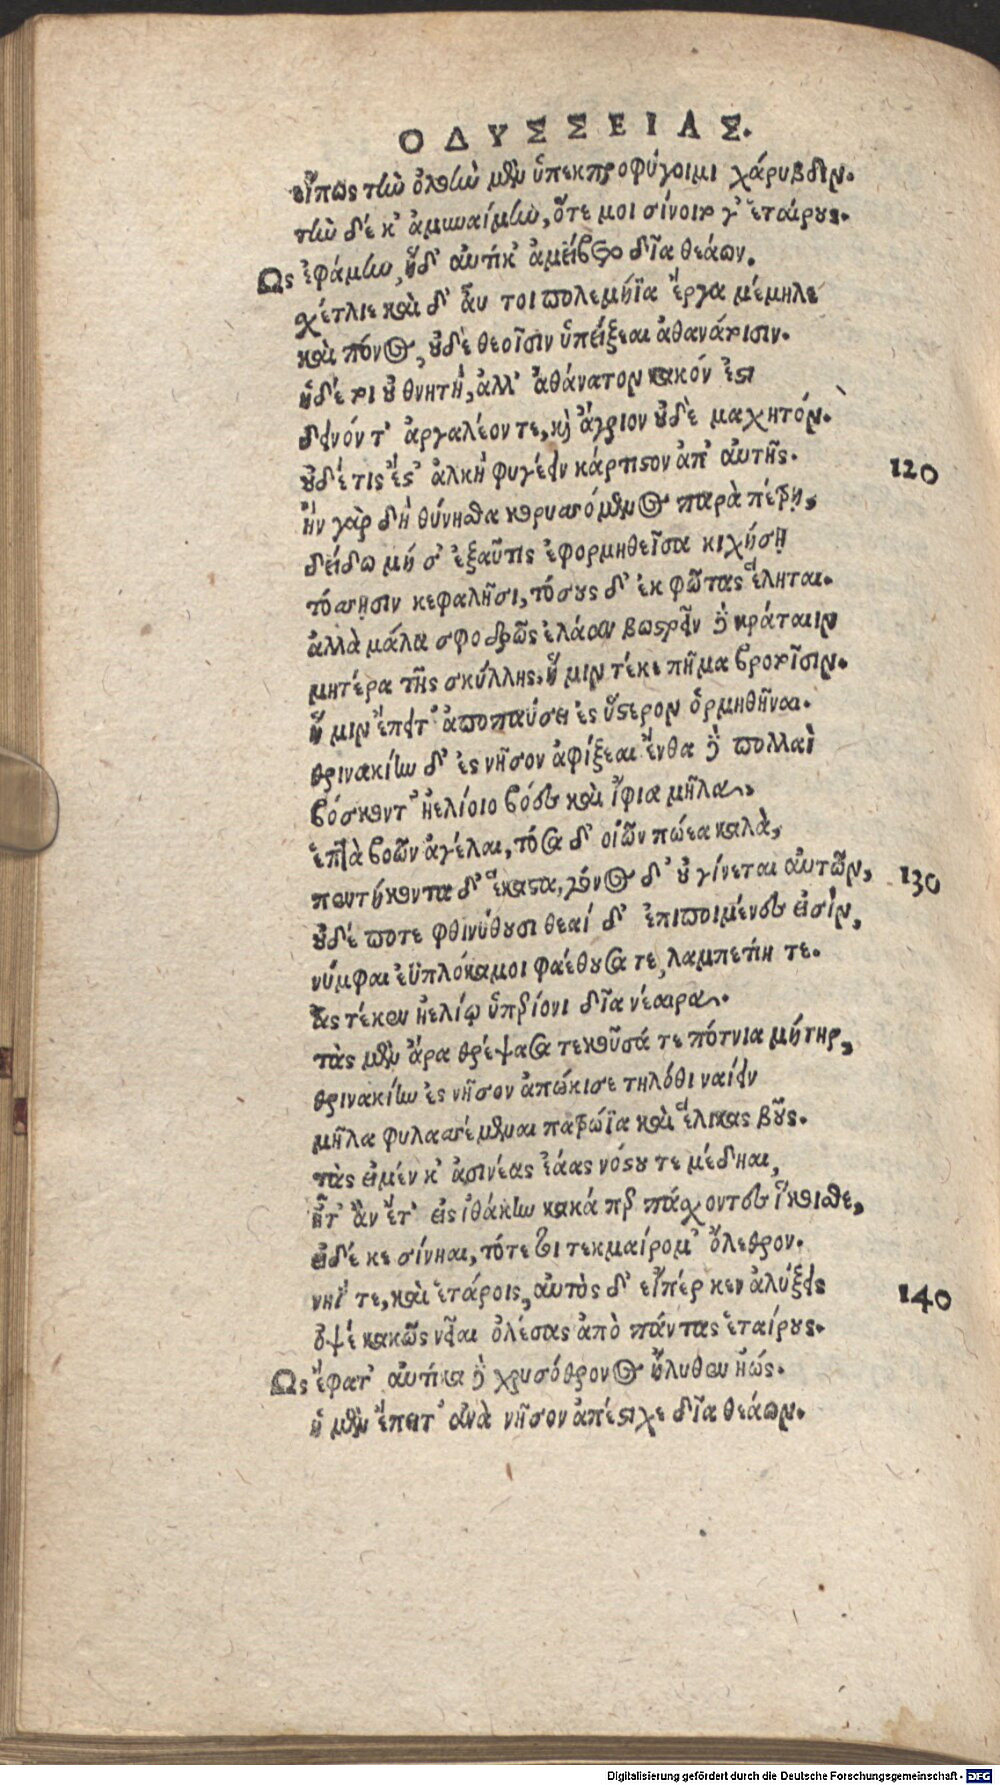 ΟΔΥΣΣΕΙΑΣ.
εἴπως τὴν ὀλοὴν μὲν ὑπεκπροφύγοιμι χάρυβδιν.
τὴν δέ κ' ἀμυναίμην, ὅτε μοι σίνοιτό γ' ἑταίρους.
Ως ἐφάμην, ἡδ' αὐτίκ' ἀμείβετο δῖα θεάων.
σχέτλιε καὶ δ' ἂυ τοι πολεμήϊα ἔργα μέμηλε
καὶ πόνος, οὐδὲ θεοῖσιν ὑπείξεαι ἀθανάτοισιν.
ἡδέ τοι οὐ θνητὴ, ἀλλ' ἀθάνατον κακόν ἐστι
δεινόν τ' ἀργαλέον τε, καὶ ἄγριον οὐδὲ μαχητόν.
οὐδέ τις ἔς' ἀλκὴ φυγέειν κάρτιστον ἀπ' αὐτῆς. 120
ἢν γὰρ δὴ θύνησθα κορυσσόμενος παρὰ πέτρῃ,
δείδω μή σ' ἐξαῦτις ἐφορμηθεῖσα κιχήσῃ
τόσσῃσιν κεφαλῆσι, τόσους δ' ἐκ φῶτας ἕληται.
ἀλλὰ μάλα σφοδρῶς ἐλάαν βωστρεῖν δὲ κράταιιν
μητέρα τῆς σκύλλης, ἥ μιν τέκε πῆμα βροτοῖσιν.
ἥ μιν ἔπειτ' ἀποπαύσει ἐς ὕστερον ὁρμηθῆναι.
θρινακίην δ' ἐς νῆσον ἀφίξεαι ἔνθα δὲ πολλαὶ
βόσκοντ' ἠελίοιο βόες καὶ ἴφια μῆλα,
ἑπτὰ βοῶν ἀγέλαι, τόσα δ' οἰῶν πώεα καλὰ,
πεντήκοντα δ' ἕκαστα, γόνος δ' οὐ γίνεται αὐτῶν, 130
οὐδέ ποτε φθινύθουσι θεαί δ' ἐπιποιμένες εἰσίν,
νύμφαι ἐϋπλόκαμοι φαέθουσα τε, λαμπετίη τε.
ἃς τέκεν ἠελίῳ ὑπερίονι δῖα νέαιρα.
τὰς μὲν ἄρα θρέψασα τεκοῦσά τε πότνια μήτηρ,
θρινακίην ἐς νῆσον ἀπῴκισε τηλόθι ναίειν
μῆλα φυλασσέμεναι πατρώϊα καὶ ἕλικας βοῦς.
τὰς εἰ μέν κ' ἀσινέας ἐάας νόστου τε μέδηαι,
ἦτ' ἂν ἔτ' εἰς ἰθάκην κακά περ πάσχοντες ἵκοισθε,
εἰ δέ κε σίνηαι, τότε τοι τεκμαίρομ' ὄλεθρον.
νηΐ τε, καὶ ἑτάροις, αὐτὸς δ' εἴπέρ κεν ἀλύξεις 140
ὀψὲ κακῶς νεῖαι ὀλέσας ἀπὸ πάντας ἑταίρους.
Ως ἔφατ' αὐτίκα δὲ χρυσόθρονος ἤλυθεν ἠώς.
ἡ μὲν ἔπειτ' ἀνὰ νῆσον ἀπέστιχε δῖα θεάων.
Digitalisierung gefördert durch die Deutsche Forschungsgemeinschaft - DFG